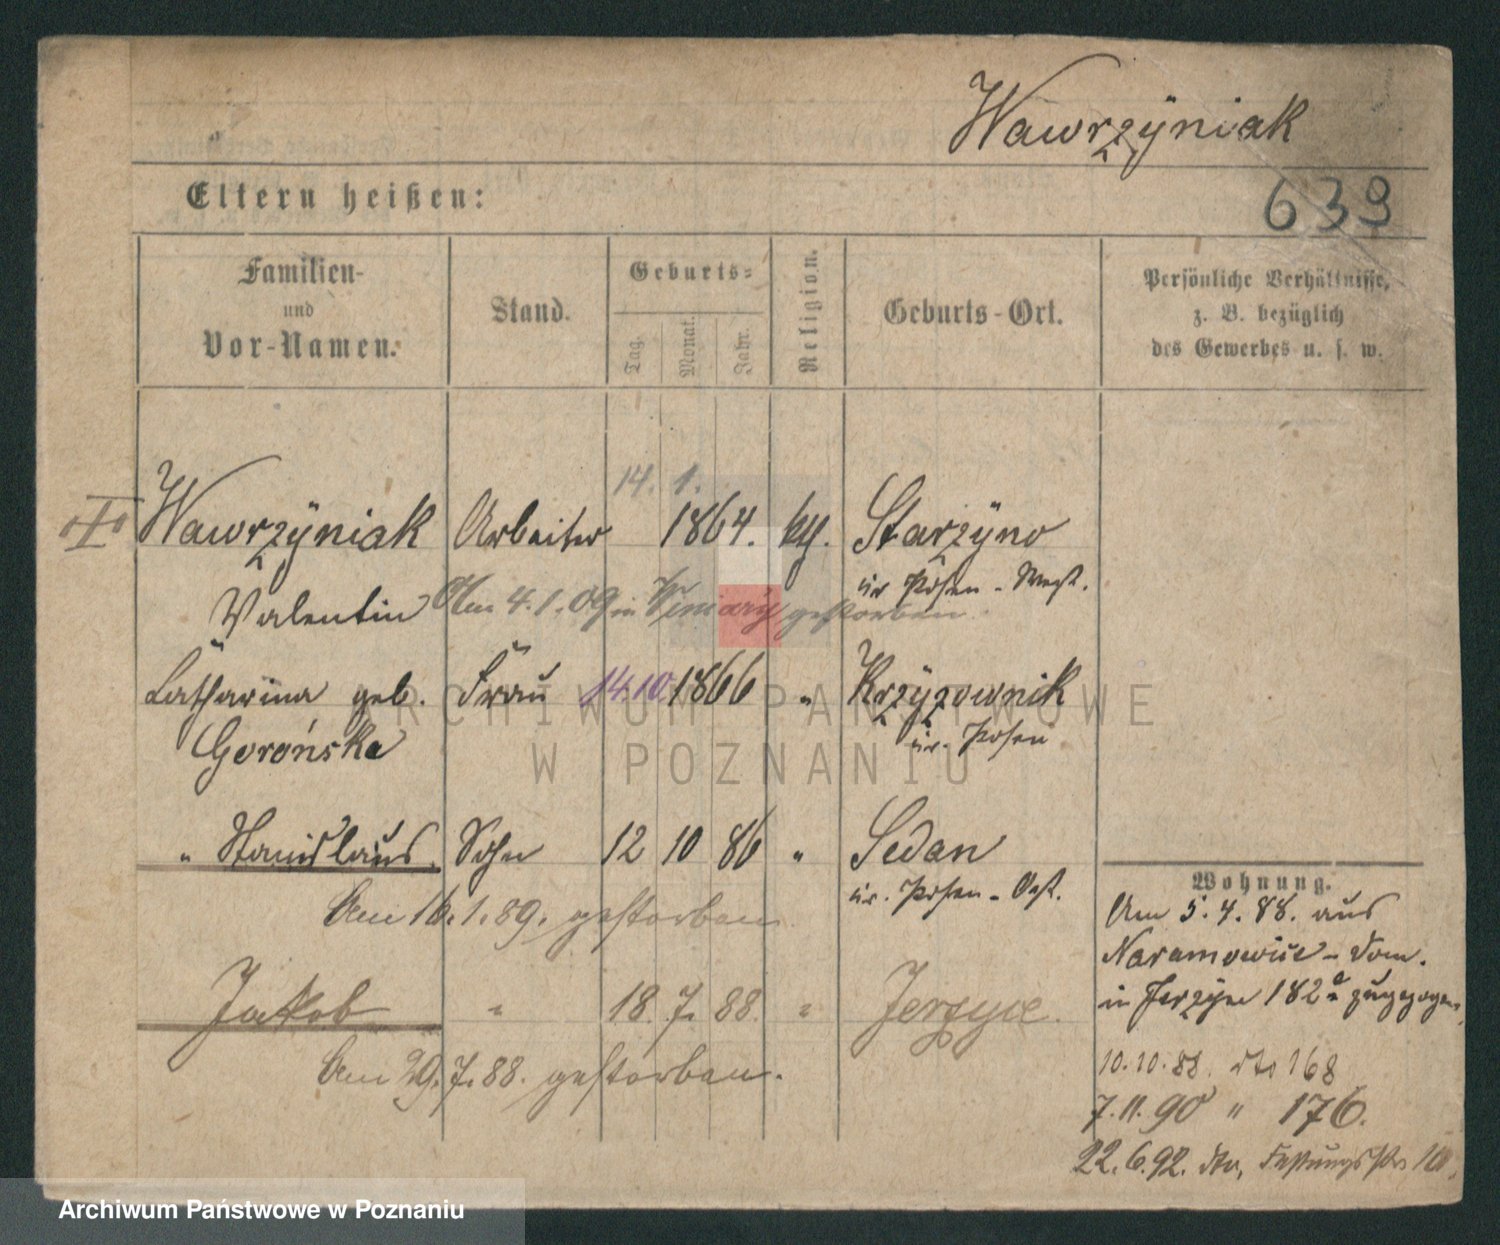 Wawrzÿniak
Eltern heißen:
639
Familien- und Vor-Namen.
Stand.
Geburts-
Tag. Monat. Jahr.
Religion.
Geburts-Ort.
Persönliche Verhältnisse,
z. B. bezüglich
des Gewerbes u. s. w.
14. 1.
Wawrzÿniak Arbeiter 1864. kth. Starzÿno
Valentin
Kr. Posen - West.
Am 4.1.09 in Winiary gestorben
Catharina geb. Frau 14.10. 1866 " Krzÿzownik
Gorońska
Kr. Posen
" Stanislaus Sohn 12 10 86 " Sedan
Kr. Posen - Ost.
Am 16.1.89. gestorben
Jakob " 18. 7. 88. " Jerzyce.
Am 29.7.88. gestorben.
Wohnung.
Am 5.4.88. aus
Naramowice - Dom.
in Jerzyce 182a zugezogen.
10.10.88. dto 168
7.11.90 " 176.
22.6.92. dto,
ARCHIWUM PAŃSTWOWE
W POZNANIU
Archiwum Państwowe w Poznaniu